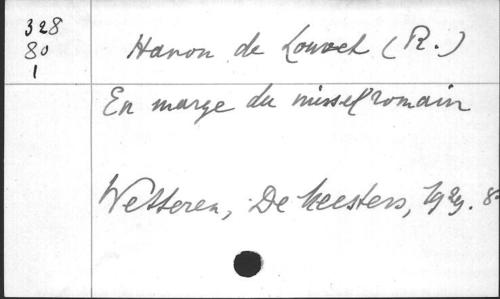 328
80
1
Hanon de Louvet (R.)
En marge du missel romain
Wetteren, De Meesters, 1929. 8°